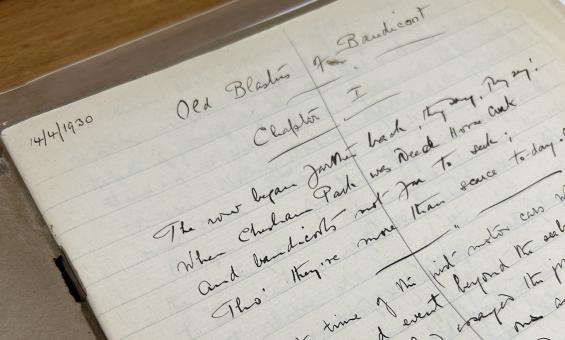 14/4/1930
Old Blastus of Bandicoot
Chapter I
The row began farther back, they say, they say!
When Chesham Park was Dead Horse Creek
And bandicoots not far to seek;
Tho' they're more than scarce to-day.
time of the first motor cars
event beyond the
the
one